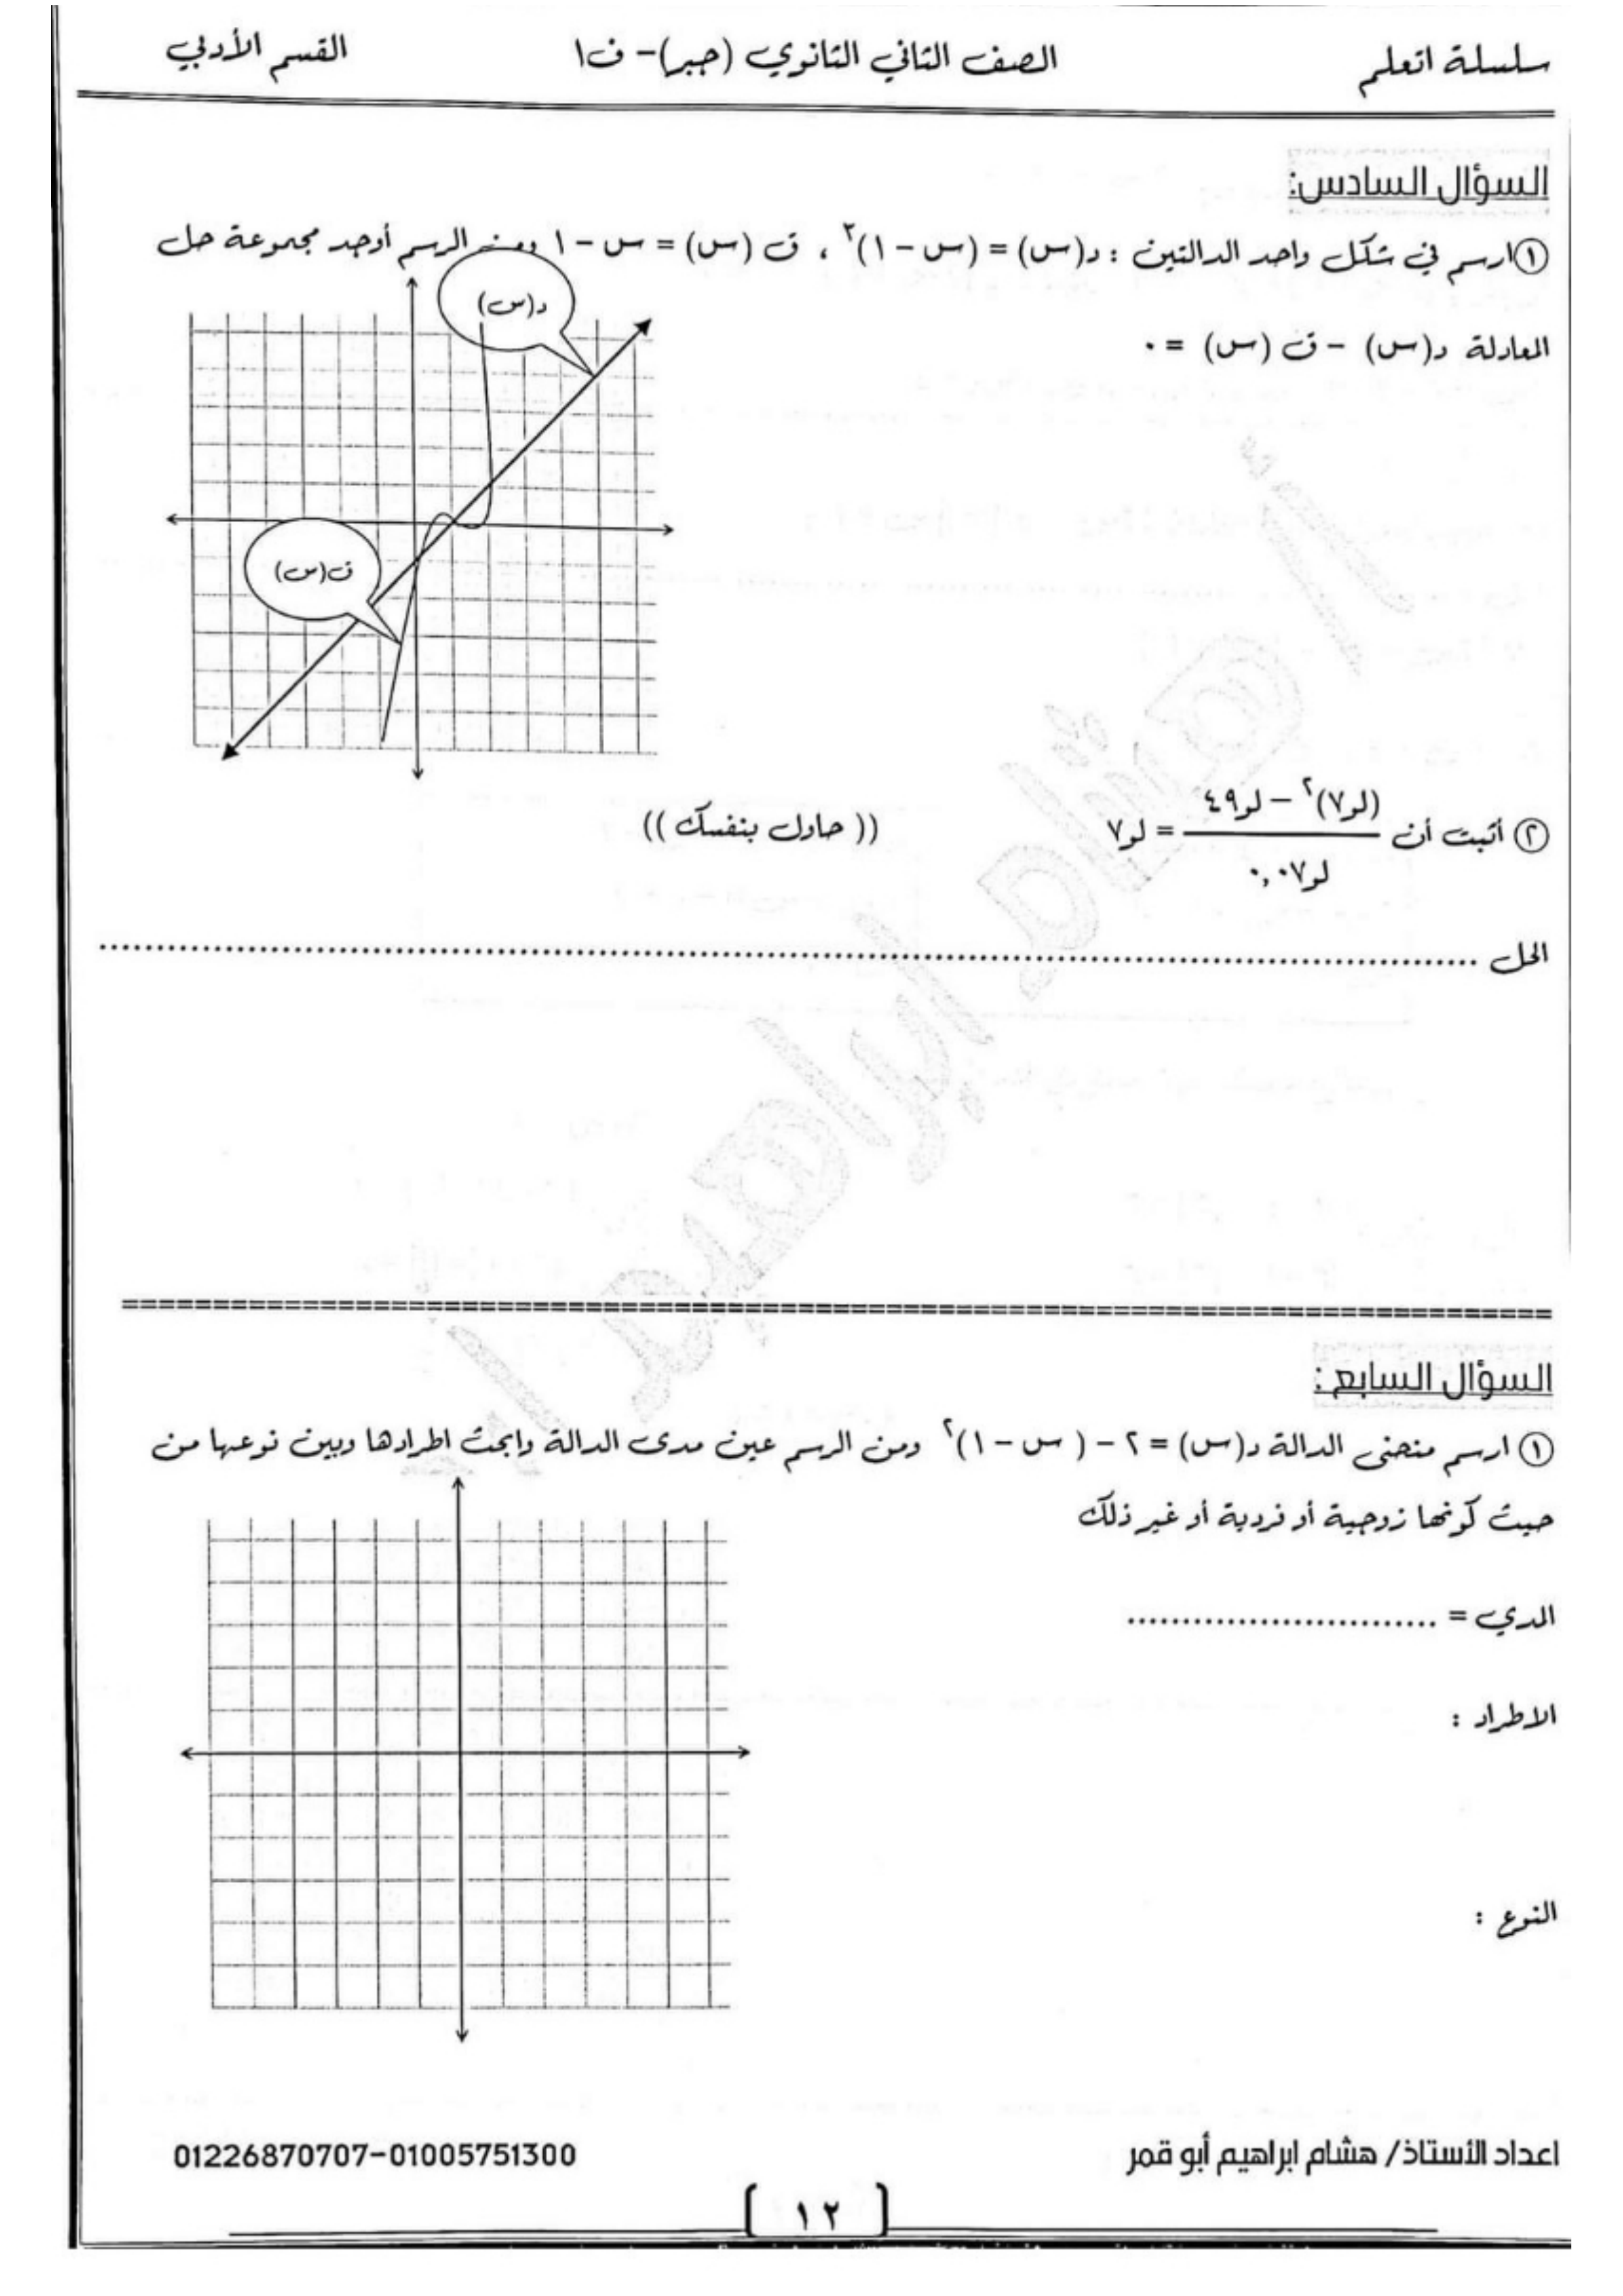 سلسلة اتعلم الصف الثاني الثانوي (جبر)- ف١ القسم الأدبي
السؤال السادس:
① ارسم في شكل واحد الدالتين : د(س) = (س - ١)³ ، ق (س) = س - ١ ومن الرسم أوجد مجموعة حل
د(س)
المعادلة د(س) - ق (س) = ٠
ق(س)
② أثبت أن (لو٧)² - لو٤٩ / لو٠,٠٧ = لو٧ (( حاول بنفسك ))
الحل ................................................
السؤال السابع :
① ارسم منحنى الدالة د(س) = ٢ - ( س - ١)² ومن الرسم عين مدى الدالة وابحث اطرادها وبين نوعها من
حيث كونها زوجية أو فردية أو غير ذلك
المدي = ............................
الاطراد :
النوع :
اعداد الأستاذ/ هشام ابراهيم أبو قمر 01226870707-01005751300
[ ١٢ ]
أ/ هشام ابراهيم أبو